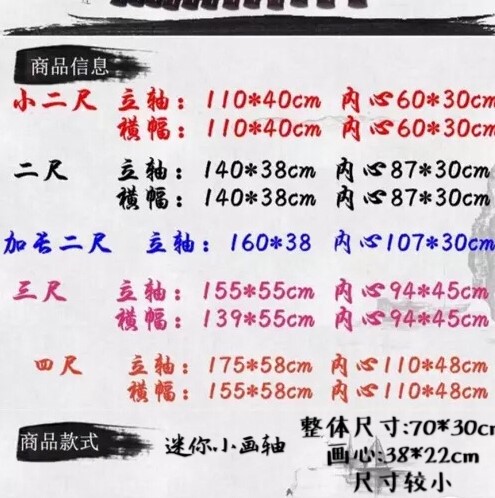 商品信息
小二尺 立轴：110*40cm 内心60*30cm
横幅：110*40cm 内心60*30cm
二尺 立轴：140*38cm 内心87*30cm
横幅：140*38cm 内心87*30cm
加长二尺 立轴：160*38 内心107*30cm
三尺 立轴：155*55cm 内心94*45cm
横幅：139*55cm 内心94*45cm
四尺 立轴：175*58cm 内心110*48cm
横幅：155*58cm 内心110*48cm
商品款式 迷你小画轴 整体尺寸:70*30cm
画心:38*22cm
尺寸较小